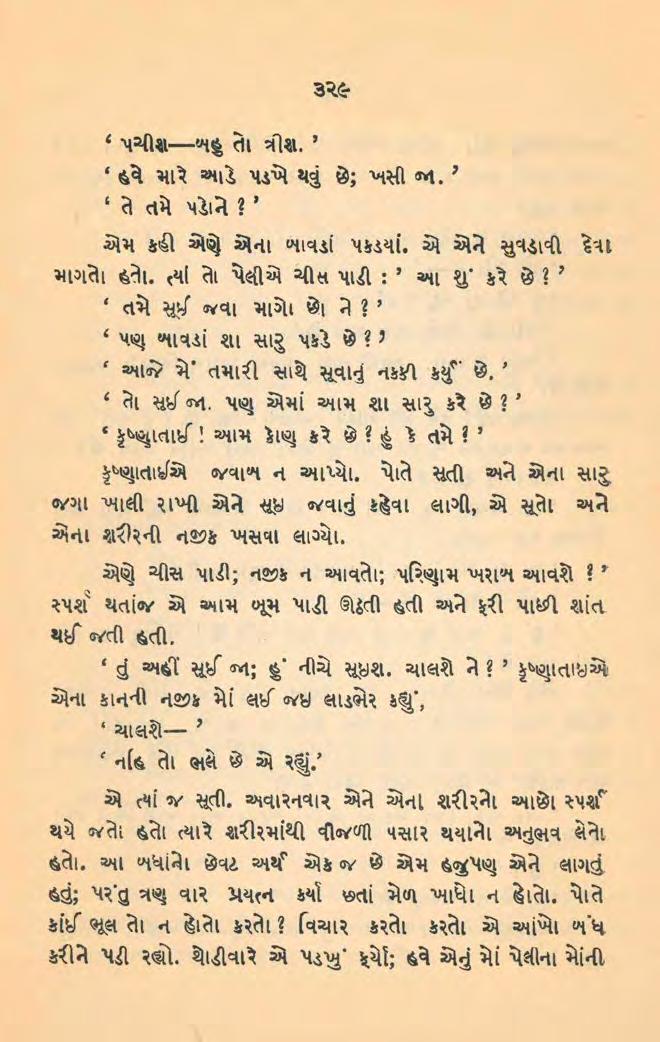 ૩૨૯
‘ પચીશ—બહુ તો ત્રીશ. ’
‘ હવે મારે આડે પડખે થવું છે; ખસી જા. ’
‘ તે તમે પડોને ? ’
એમ કહી એણે એના બાવડાં પકડયાં. એ એને સુવડાવી દેવા
માગતો હતો. ત્યાં તો પેલીએ ચીસ પાડી : ’ આ શું કરે છે ? ’
‘ તમે સૂઈ જવા માગો છો ને ? ’
‘ પણ બાવડાં શા સારુ પકડે છે ? ’
‘ આજે મેં તમારી સાથે સૂવાનું નક્કી કર્યું છે. ’
‘ તો સૂઈ જા. પણ એમાં આમ શા સારુ કરે છે ? ’
‘ કૃષ્ણાતાઈ ! આમ કોણ કરે છે ? હું કે તમે ? ’
કૃષ્ણાતાઈએ જવાબ ન આપ્યો. પોતે સૂતી અને એના સારુ
જગા ખાલી રાખી એને સૂઇ જવાનું કહેવા લાગી, એ સૂતો અને
એના શરીરની નજીક ખસવા લાગ્યો.
એણે ચીસ પાડી; નજીક ન આવતો; પરિણામ ખરાબ આવશે ? ’
સ્પર્શ થતાંજ એ આમ બૂમ પાડી ઊઠતી હતી અને ફરી પાછી શાંત
થઈ જતી હતી.
‘ તું અહીં સૂઈ જા; હું નીચે સૂઇશ. ચાલશે ને ? ’ કૃષ્ણાતાઇએ
એના કાનની નજીક મોં લઈ જઇ લાડભેર કહ્યું,
‘ ચાલશે— ’
‘ નહિ તો ભલે છે એ રહ્યું.’
એ ત્યાં જ સૂતી. અવારનવાર એને એના શરીરનો આછો સ્પર્શ
થયે જતો હતો ત્યારે શરીરમાંથી વીજળી પસાર થયાનો અનુભવ લેતો
હતો. આ બધાંનો છેવટ અર્થ એક જ છે એમ હજુપણ એને લાગતું
હતું; પરંતુ ત્રણ વાર પ્રયત્ન કર્યા છતાં મેળ ખાધો ન હોતો. પોતે
કાંઈ ભૂલ તો ન હોતો કરતો ? વિચાર કરતો કરતો એ આંખો બંધ
કરીને પડી રહ્યો. થોડીવારે એ પડખું ફર્યો; હવે એનું મોં પેલીના મોંની